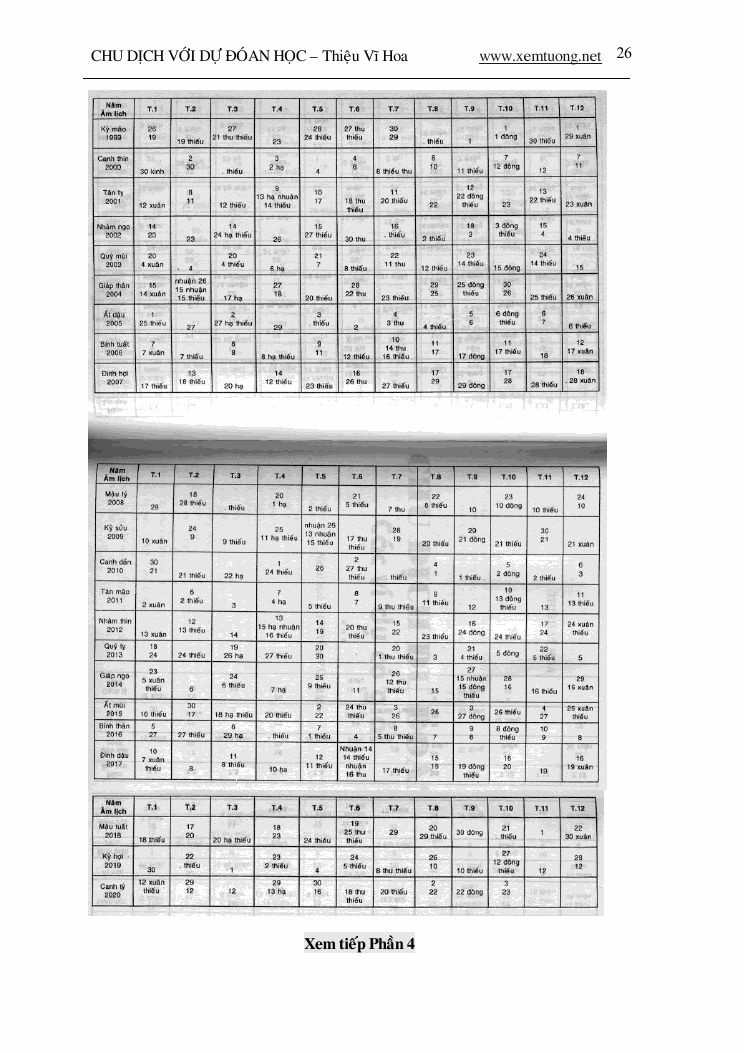 CHU DỊCH VỚI DỰ ĐÓAN HỌC – Thiệu Vĩ Hoa www.xemtuong.net 26
Năm Âm lịch T.1 T.2 T.3 T.4 T.5 T.6 T.7 T.8 T.9 T.10 T.11 T.12
Kỷ mão 26 27 28 27 thu 30 1 1
1999 19 19 thiếu 21 thu thiếu 23 24 thiếu thiếu 29 . thiếu 1 1 đông 30 thiếu 29 xuân
Canh thìn 2 3 4 6 7 7
2000 30 kinh 30 . thiếu 2 hạ 4 6 8 thiếu thu 10 11 thiếu 12 đông 12 11
Tân tỵ 8 9 10 11 12 13
2001 12 xuân 11 12 thiếu 13 hạ nhuận 14 thiếu 17 18 thu thiếu 20 thiếu 22 22 đông thiếu 23 22 thiếu 23 xuân
Nhâm ngọ 14 14 15 16 18 3 đông 15
2002 23 23 24 hạ thiếu 26 27 thiếu 30 thu . thiếu 2 thiếu 3 thiếu 4 4 thiếu
Quý mùi 20 20 21 22 23 24
2003 4 xuân . 4 4 thiếu 6 hạ 7 8 thiếu 11 thu 12 thiếu 14 thiếu 15 đông 14 thiếu 15
Giáp thân 15 nhuận 26 27 28 29 25 đông 30
2004 14 xuân 15 nhuận 15 thiếu 17 hạ 18 20 thiếu 22 thu 23 thiếu 25 thiếu 26 25 thiếu 26 xuân
Ất dậu 1 2 3 4 5 6 đông 6
2005 25 thiếu 27 27 hạ thiếu 29 . thiếu 2 3 thu 4 thiếu 6 thiếu 7 6 thiếu
Bính tuất 7 8 9 10 11 11 12
2006 7 xuân 7 thiếu 8 8 hạ thiếu 11 12 thiếu 14 thu 16 thiếu 17 17 đông 17 thiếu 18 17 xuân
Đinh hợi 13 14 16 17 17 18
2007 17 thiếu 18 thiếu 20 hạ 12 thiếu 23 thiếu 26 thu 27 thiếu 29 29 đông 28 28 thiếu . 28 xuân
Năm Âm lịch T.1 T.2 T.3 T.4 T.5 T.6 T.7 T.8 T.9 T.10 T.11 T.12
Mậu tý 18 20 21 22 23 24
2008 28 28 thiếu . thiếu 1 hạ 2 thiếu 5 thiếu 7 thu 8 thiếu 10 10 đông 10 thiếu 10
Kỷ sửu 24 25 nhuận 26 28 29 30
2009 10 xuân 9 9 thiếu 11 hạ thiếu 13 nhuận 15 thiếu 17 thu thiếu 19 20 thiếu 21 đông 21 thiếu 21 21 xuân
Canh dần 30 1 2 4 5 6
2010 21 21 thiếu 22 hạ 24 thiếu 26 27 thu thiếu . thiếu 1 1 thiếu . 2 đông 2 thiếu 3
Tân mão 6 7 8 9 10 11
2011 2 xuân 2 thiếu 3 4 hạ 5 thiếu 7 9 thu thiếu 11 thiếu 12 13 đông thiếu 13 13 thiếu
Nhâm thìn 12 13 14 15 16 17 24 xuân
2012 13 xuân 13 thiếu 14 15 hạ nhuận 16 thiếu 19 20 thu thiếu 22 23 thiếu 24 đông 24 thiếu 24 thiếu
Quý tỵ 18 19 20 20 21 22
2013 24 24 thiếu 26 hạ 27 thiếu 30 1 thu thiếu 3 4 thiếu 5 đông 5 thiếu 5
Giáp ngọ 23 24 25 26 27 28 29
2014 5 xuân thiếu 6 6 thiếu 7 hạ 9 thiếu 11 12 thu thiếu 15 15 nhuận 15 đông thiếu 16 16 thiếu 16 xuân
Ất mùi 30 2 24 thu 3 3 4 26 xuân
2015 16 thiếu 17 18 hạ thiếu 20 thiếu 22 thiếu 26 26 27 đông 26 thiếu 27 thiếu
Bính thân 5 6 7 8 9 8 đông 10
2016 27 27 thiếu 29 hạ . thiếu 1 thiếu 4 5 thu thiếu 7 8 thiếu 9 8
Đinh dậu 10 11 12 Nhuận 14 15 16 16
2017 7 xuân thiếu 8 8 thiếu 10 hạ 11 thiếu 14 thiếu nhuận 16 thu 17 thiếu 19 19 đông thiếu 20 19 19 xuân
Năm Âm lịch T.1 T.2 T.3 T.4 T.5 T.6 T.7 T.8 T.9 T.10 T.11 T.12
Mậu tuất 17 18 19 20 21 22
2018 18 thiếu 20 20 hạ thiếu 23 24 thiếu 25 thu thiếu 29 29 thiếu 30 đông . thiếu 1 30 xuân
Kỷ hợi 22 23 24 26 27 28
2019 30 . thiếu 1 2 thiếu 4 5 thiếu 8 thu thiếu 10 10 thiếu 12 đông thiếu 12 12
Canh tý 12 xuân 29 29 30 2 3
2020 thiếu 12 12 13 hạ 16 18 thu thiếu 20 thiếu 22 22 đông 23
Xem tiếp Phần 4